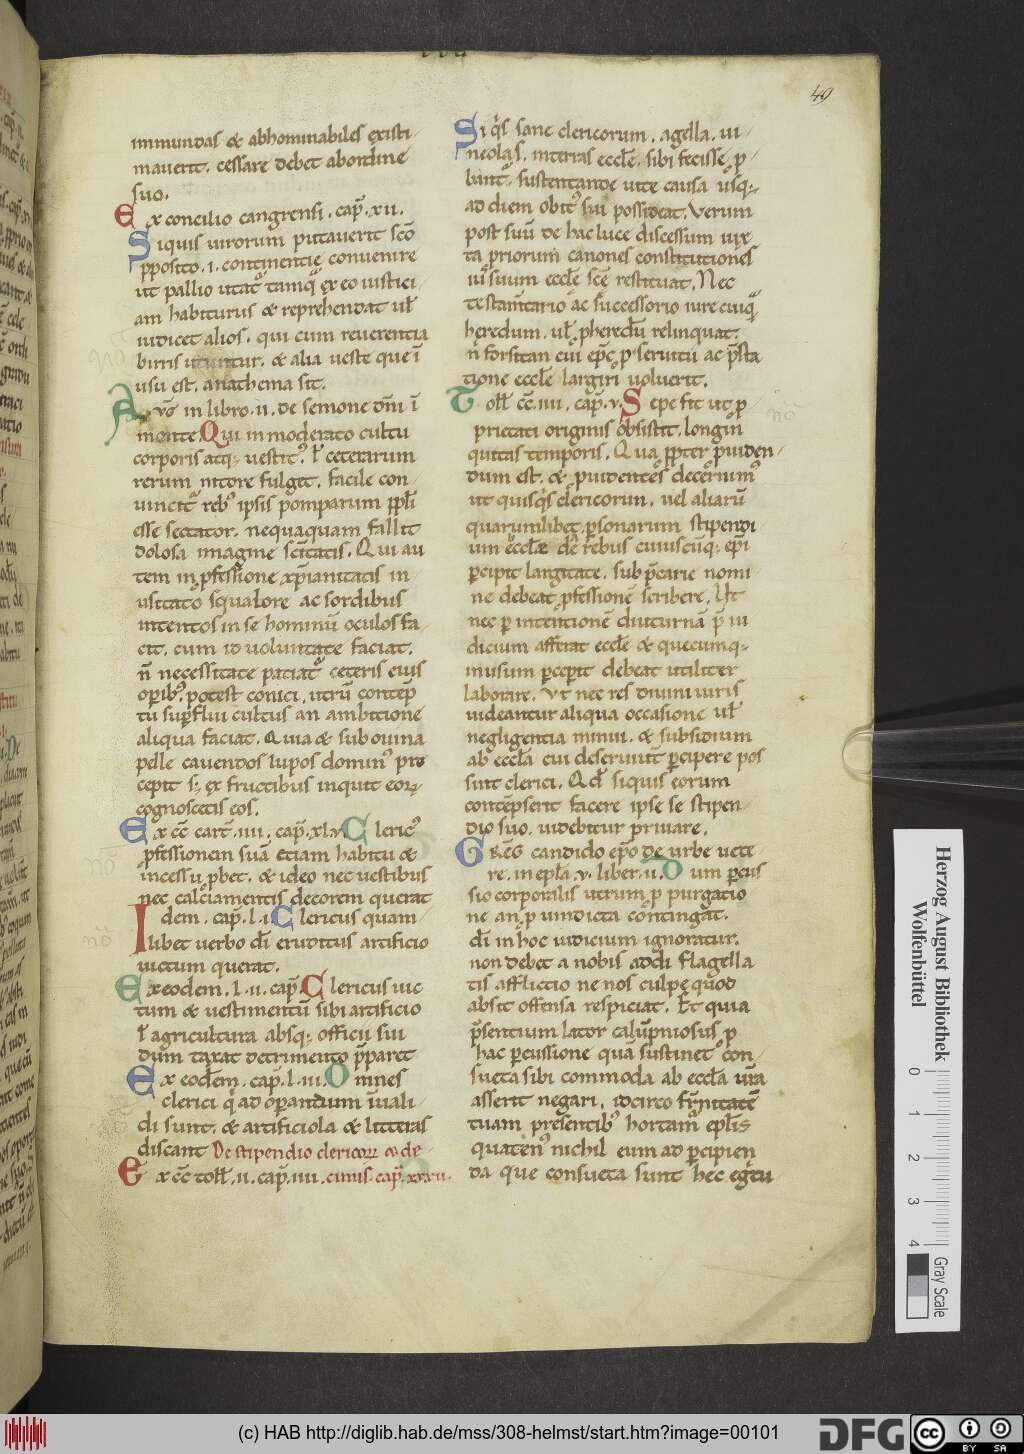 49
immundas & abhominabiles existi-
mauerit. cessare debet abordine
suo.
Ex concilio cangrensi. cap̄. xii.
Siquis uirorum putauerit sc̄o
p̄posito. i. continentie conuenire
ut pallio utat̄ tamq̄ ex eo iustici-
am habiturus & reprehendat ul̄
iudicet alios. qui cum reuerentia
birris utuntur. & alia ueste que ī
usu est. anathema sit.
Auḡ in libro. ii. de sermone dn̄i ī
monte. Qui inmoderato cultu
corporis atq; uestit᾽. l̄ ceterarum
rerum nitore fulget. facile con-
uincit̄ reb᾽ ipsis pomparum
esse sectator. nequaquam fallit
dolosa imagine sc̄itatis. Qui au
tem in p̄fessione xp̄ianitatis in
usitato squalore ac sordibus
intentos in se hominū oculos fa-
cit. cum id uoluntate faciat.
n̄ necessitate patiat̄ ceteris eius
op̄ib᾽. potest conici. utrū contēp
tu sup̄flui cultus an ambitione
aliqua faciat. Quia & sub ouina
pelle cauendos lupos domin᾽ pre
cepit s; ex fructibus inquit eoꝝ
cognoscetis eos.
Ex cc̄ cart̄. iiii. cap̄. xlv. Cleric᾽
p̄fessionem suā etiam habitu &
incessu p̄bet. & ideo nec uestibus
nec calciamentis decorem querat
Idem. cap̄. l. i. Clericus quam-
libet uerbo dī eruditus artificio
uictum querat.
Ex eodem. l. ii. cap̄. Clericus uic
tum & uestimentū sibi artificio
l̄ agricultura absq; officii sui
dum taxat detrimento p̄paret
Ex eodem. cap̄. l. iii. Omnes
clerici q̄ ad operandum īuali-
di sunt. & artificiola & litteras
discant De stipendio clericoꝝ
Ex cc̄ toll̄. ii. cap̄. iiii.
Siq̄s sane clericorum. agella. ui-
neolas. in terras eccl̄e. sibi fecisse p-
bāt̄. sustentande uite causa usq;
ad diem obit᾽ sui possideat. Verum
post suū de hac luce discessum iux
ta priorum canones constitutiones
iꝰ suum eccl̄e sc̄e restituat. Nec
testam̄tario ac successorio iure cuiq̄
heredum. ul̄ p̄heredū relinquat.
n̄ forsitan cui ep̄c p seruitū ac p̄sta
tione eccl̄e largiri uoluerit.
Toll̄ cc̄. iiii. cap̄. v. Sepe fit ut p
prietati originis obsistit. longin
quitas temporis. Qua pp̄ter p̄uiden-
dum est. & p̄uidentes decernim᾽
ut quisq̄s clericorum. uel aliarū
quarumlibet p̄sonarum stipendi
um eccl̄æ de rebus cuiuscūq; ep̄i
p̄cipit largitate. sub p̄carie nomi-
ne debeat p̄fessione scribere. Ut
nec p intentionē diuturnā p̄iu
dicium afferat eccl̄e & quecumq;
in usum p̄cepit debeat utiliter
laborare. Vt nec res diuini iuris
uideantur aliqua occasione ul̄
negligentia minui. & subsidium
ab eccl̄a cui deseruiūt p̄cipere pos
sint clerici. Qd̄ siquis eorum
contēpserit facere ipse se stipen-
dio suo. uidebitur priuare.
Greḡ candido ep̄o de urbe uete
re. in epl̄a. v. liber. ii. Dum p̄cus
sio corporalis utrum p purgatio
ne an p uindicta contingat.
dī in hoc iudicium ignoratur.
non debet a nobis addi flagella
tis afflictio ne nos culpe quod
absit offensa respiciat. Et quia
p̄sentium lator calūpniosus p
hac p̄cussione quā sustinet con-
sueta sibi commoda ab eccl̄a ur̄a
asserit negari. idcirco fr̄nitatē
tuam presentib᾽ hortam̄ epl̄is
quaten᾽ nichil eum ad p̄cipien
da que consueta sunt hec egrtu
Herzog August Bibliothek
Wolfenbüttel
0 1 2 3 4
Gray Scale
(c) HAB http://diglib.hab.de/mss/308-helmst/start.htm?image=00101
DFG
cc BY SA